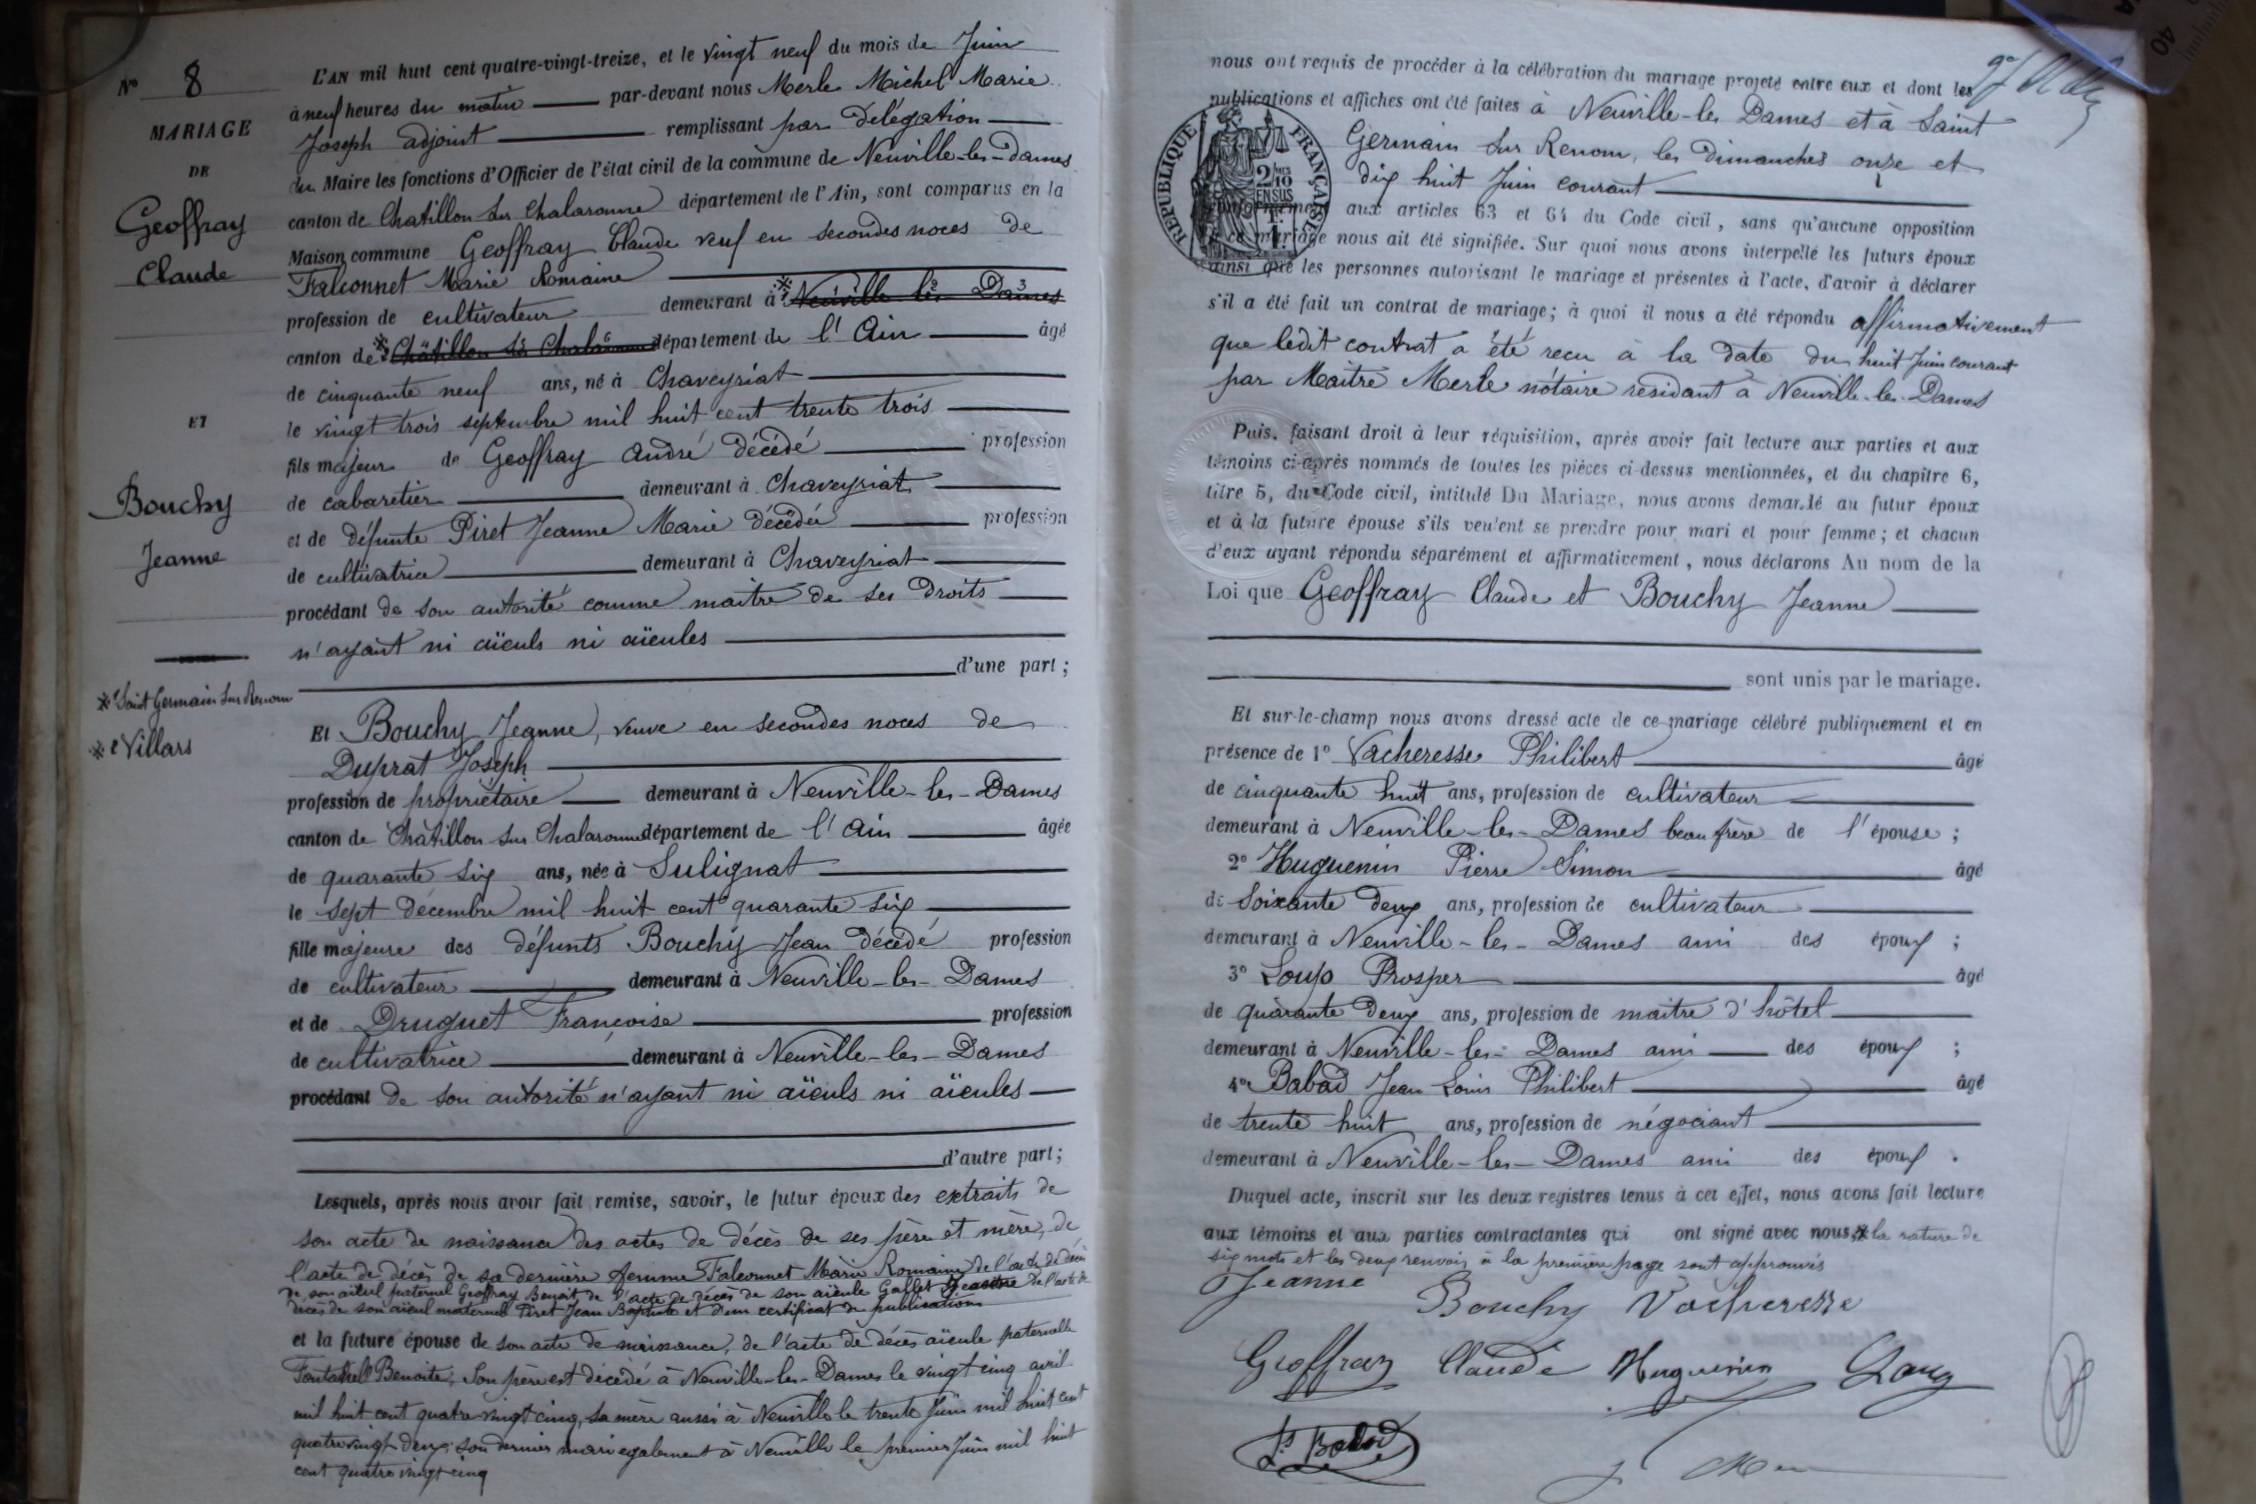 N° 8
MARIAGE
DE
Geoffray
Claude
ET
Bouchy
Jeanne
* Saint Germain sur Renom
* Villars
L'AN mil huit cent quatre-vingt-treize, et le vingt neuf du mois de Juin
à neuf heures du matin par-devant nous Merle Michel Marie
Joseph adjoint remplissant par délégation
du Maire les fonctions d'Officier de l'état civil de la commune de Neuville-les-Dames
canton de Chatillon sur Chalaronne département de l'Ain, sont comparus en la
Maison commune Geoffray Claude veuf en secondes noces de
Falconnet Marie Romaine
profession de cultivateur demeurant à * Neuville les Dames
canton de * Châtillon sr Chalaronne département de l'Ain âgé
de cinquante neuf ans, né à Chaveyriat
le vingt trois septembre mil huit cent trente trois
fils majeur de Geoffray André décédé profession
de cabaretier demeurant à Chaveyriat
et de défunte Piret Jeanne Marie décédée profession
de cultivatrice demeurant à Chaveyriat
procédant de son autorité comme maitre de ses droits
n'ayant ni aïeuls ni aïeules
d'une part;
Et Bouchy Jeanne, veuve en secondes noces de
Duprat Joseph
profession de propriétaire demeurant à Neuville-les-Dames
canton de Châtillon sur Chalaronne département de l'Ain âgée
de quarante six ans, née à Sulignat
le sept décembre mil huit cent quarante six
fille majeure des défunts Bouchy Jean décédé profession
de cultivateur demeurant à Neuville-les-Dames
et de Druguet Françoise profession
de cultivatrice demeurant à Neuville-les-Dames
procédant de son autorité n'ayant ni aïeuls ni aïeules
d'autre part;
Lesquels, après nous avoir fait remise, savoir, le futur époux des extraits de
son acte de naissance des actes de décès de ses père et mère, de
l'acte de décès de sa dernière femme Falconnet Marie Romaine de l'acte de décès
de son aïeul paternel Geoffray Benoit de l'acte de décès de son aïeule Gallet de l'acte de
décès de son aïeul maternel Piret Jean Baptiste et d'un certificat de publications
et la future épouse de son acte de naissance, de l'acte de décès aïeule paternelle
Benoite; Son père est décédé à Neuville-les-Dames le vingt cinq avril
mil huit cent quatre vingt cinq, sa mère aussi à Neuville le trente Juin mil huit cent
quatre vingt deux; son dernier mari également à Neuville le premier Juin mil huit
cent quatre vingt cinq
nous ont requis de procéder à la célébration du mariage projeté entre eux et dont les
publications et affiches ont été faites à Neuville-les Dames et à Saint
Germain sur Renom, les dimanches onze et
dix huit Juin courant
RÉPUBLIQUE FRANÇAISE
2 MES 10
EN SUS
conformément aux articles 63 et 64 du Code civil, sans qu'aucune opposition
à ce mariage nous ait été signifiée. Sur quoi nous avons interpellé les futurs époux
ainsi que les personnes autorisant le mariage et présentes à l'acte, d'avoir à déclarer
s'il a été fait un contrat de mariage; à quoi il nous a été répondu affirmativement
que ledit contrat a été reçu à la date du huit Juin courant
par Maitre Merle nótaire résidant à Neuville-les-Dames
Puis, faisant droit à leur réquisition, après avoir fait lecture aux parties et aux
témoins ci-après nommés de toutes les pièces ci-dessus mentionnées, et du chapitre 6,
titre 5, du Code civil, intitulé Du Mariage, nous avons demandé au futur époux
et à la future épouse s'ils veulent se prendre pour mari et pour femme; et chacun
d'eux ayant répondu séparément et affirmativement, nous déclarons Au nom de la
Loi que Geoffray Claude et Bouchy Jeanne
sont unis par le mariage.
Et sur-le-champ nous avons dressé acte de ce mariage célébré publiquement et en
présence de 1° Vacheresse Philibert âgé
de cinquante huit ans, profession de cultivateur
demeurant à Neuville-les-Dames beau frère de l'épouse;
2° Huguenin Pierre Simon âgé
de soixante deux ans, profession de cultivateur
demeurant à Neuville-les-Dames ami des époux;
3° Loup Prosper âgé
de quarante deux ans, profession de maitre d'hôtel
demeurant à Neuville-les-Dames ami des époux;
4° Babad Jean Louis Philibert âgé
de trente huit ans, profession de négociant
demeurant à Neuville-les-Dames ami des époux.
Duquel acte, inscrit sur les deux registres tenus à cet effet, nous avons fait lecture
aux témoins et aux parties contractantes qui ont signé avec nous * la rature de
six mots et les deux renvois à la première page sont approuvés
Jeanne Bouchy Vacheresse
Geoffray Claude Huguenin Loup
Babad